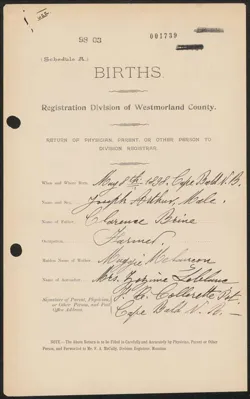 58 03
001739
(Schedule A.)
BIRTHS.
Registration Division of Westmorland County.
RETURN OF PHYSICIAN, PARENT, OR OTHER PERSON TO
DIVISION REGISTRAR.
When and Where Born, May Cape Bald N. B.
Name and Sex, Joseph Arthur, Male.
Name of Father, Clarence Brine
Occupation, Farmer.
Maiden Name of Mother, Maggie Melanson
Name of Mrs. Leblanc
Signature of Parent, Physician,
or Other Person, and Post
Office Address.
Cape Bald N. B.
NOTE.—The Above Return is to be Filled in Carefully and Accurately by Physician, Parent or Other
Person, and Forwarded to Division Registrar, Moncton.